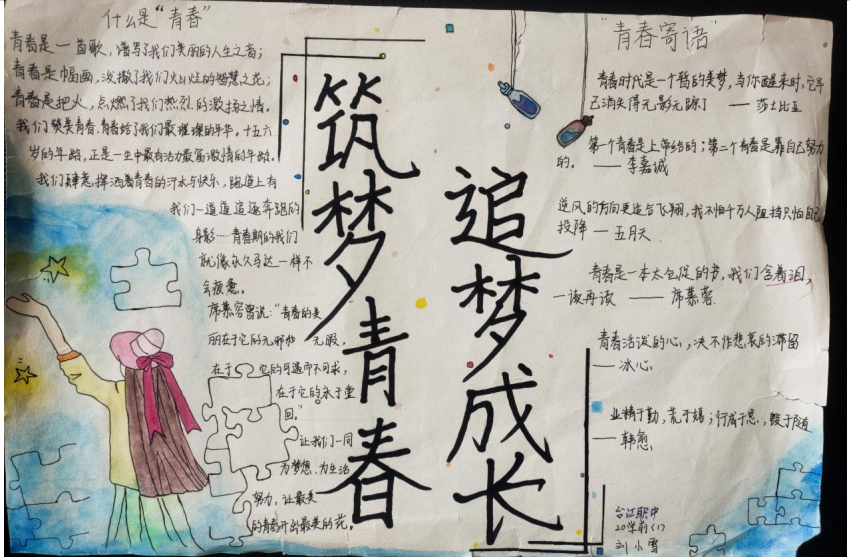 什么是“青春”
青春是一首歌，谱写了我们美丽的人生之音；
青春是幅画，泼撒了我们灿烂的智慧之花；
青春是把火，点燃了我们热烈的激扬之情。
我们赞美青春，青春给了我们最璀璨的年华，十五六
岁的年龄，正是一生中最有活力最富激情的年龄。
我们肆意挥洒着青春的汗水与快乐，跑道上有
我们一道道追逐奔跑的
身影……青春期的我们
就像永久马达一样不
会疲惫。
席慕容曾说：“青春的美
丽在于它的无邪和无瑕，
在于它的可遇而不可求，
在于它的永不重
回。”
让我们一同
为梦想、为生活
努力，让最美
的青春开出最美的花。
筑梦青春
追梦成长
“青春寄语”
青春时代是一个短暂的美梦，当你醒来时，它早
已消失得无影无踪了 — 莎士比亚
第一个青春是上帝给的；第二个青春是靠自己努力
的。 — 李嘉诚
逆风的方向更适合飞翔，我不怕千万人阻挡只怕自己
投降 — 五月天
青春是一本太仓促的书，我们含着泪，
一读再读 — 席慕蓉
青春活泼的心，决不作悲哀的滞留
— 冰心
业精于勤，荒于嬉；行成于思，毁于随
— 韩愈
台江职中
刘小雪